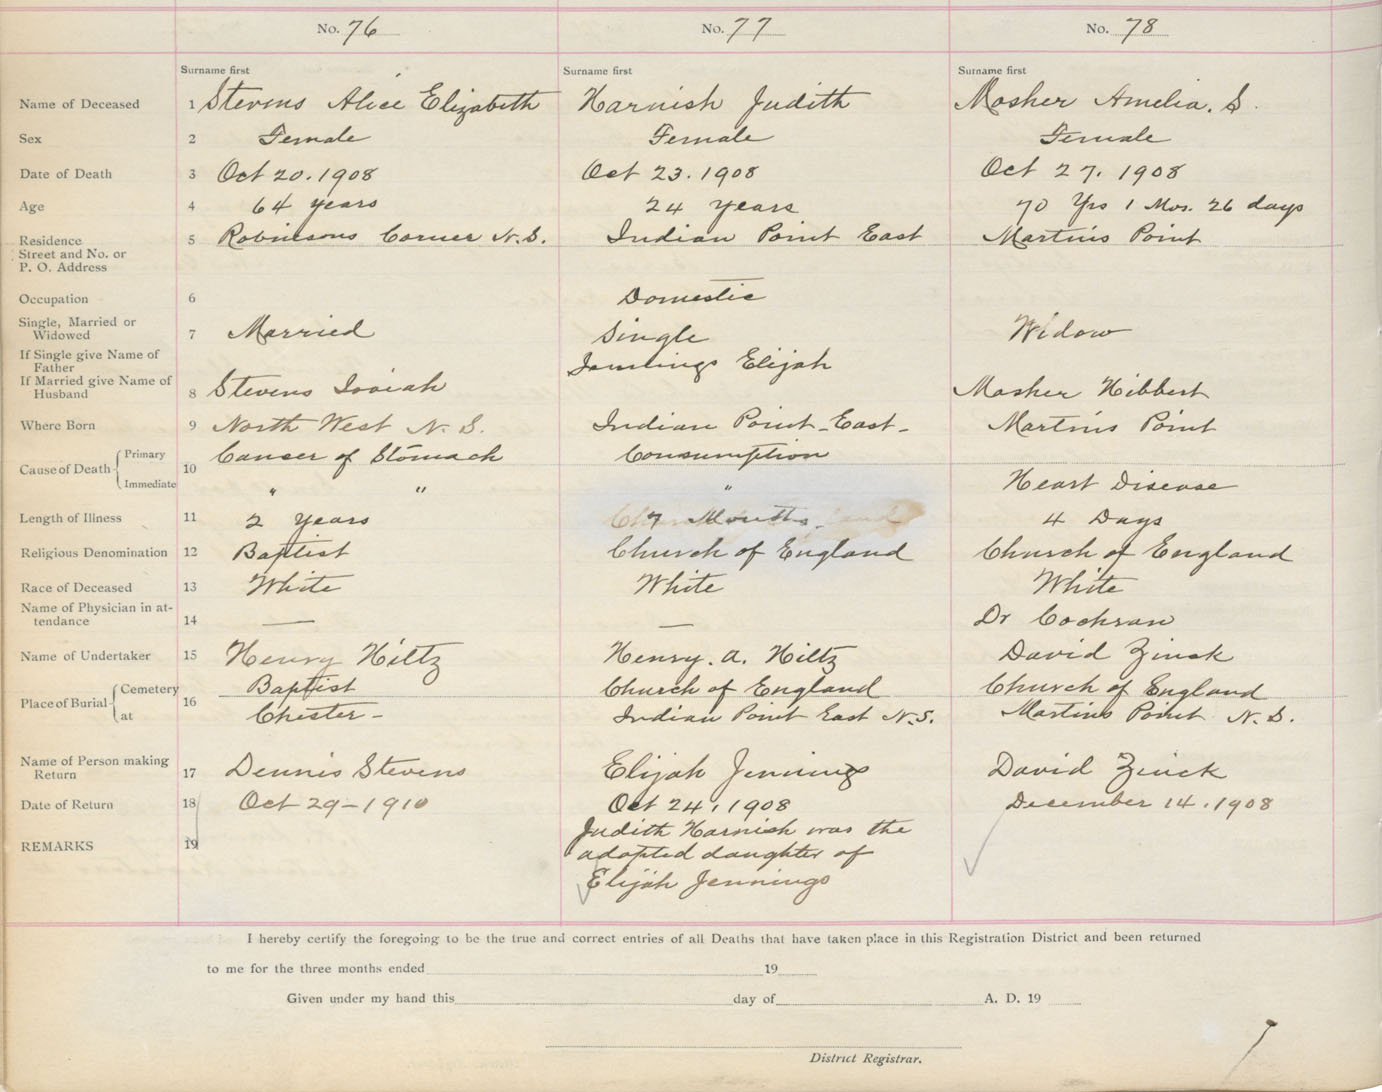 No. 76 No. 77 No. 78
Surname first Surname first Surname first
Name of Deceased 1 Stevens Alice Elizabeth Harnish Judith Mosher Amelia. S.
Sex 2 Female Female Female
Date of Death 3 Oct 20. 1908 Oct 23. 1908 Oct 27. 1908
Age 4 64 years 24 years 70 Yrs 1 Mos. 26 days
Residence 5 Robinsons Corner N.S. Indian Point East Martins Point
Street and No. or
P. O. Address
Occupation 6 Domestic
Single, Married or
Widowed 7 Married Single Widow
If Single give Name of
Father Jennings Elijah
If Married give Name of
Husband 8 Stevens Isaiah Mosher Hibbert
Where Born 9 North West N. S. Indian Point - East - Martins Point
Cause of Death Primary 10 Cancer of Stomach Consumption
Immediate " " " Heart Disease
Length of Illness 11 2 years 7 Months 4 Days
Religious Denomination 12 Baptist Church of England Church of England
Race of Deceased 13 White White White
Name of Physician in at-
tendance 14 — — Dr Cochran
Name of Undertaker 15 Henry Hiltz Henry. A. Hiltz David Zinck
Place of Burial Cemetery 16 Baptist Church of England Church of England
at Chester - Indian Point East N.S. Martins Point N. S.
Name of Person making
Return 17 Dennis Stevens Elijah Jennings David Zinck
Date of Return 18 Oct 29 - 1910 Oct 24, 1908 December 14. 1908
REMARKS 19 Judith Harnish was the
adopted daughter of
Elijah Jennings
I hereby certify the foregoing to be the true and correct entries of all Deaths that have taken place in this Registration District and been returned
to me for the three months ended 19
Given under my hand this day of A. D. 19
District Registrar.